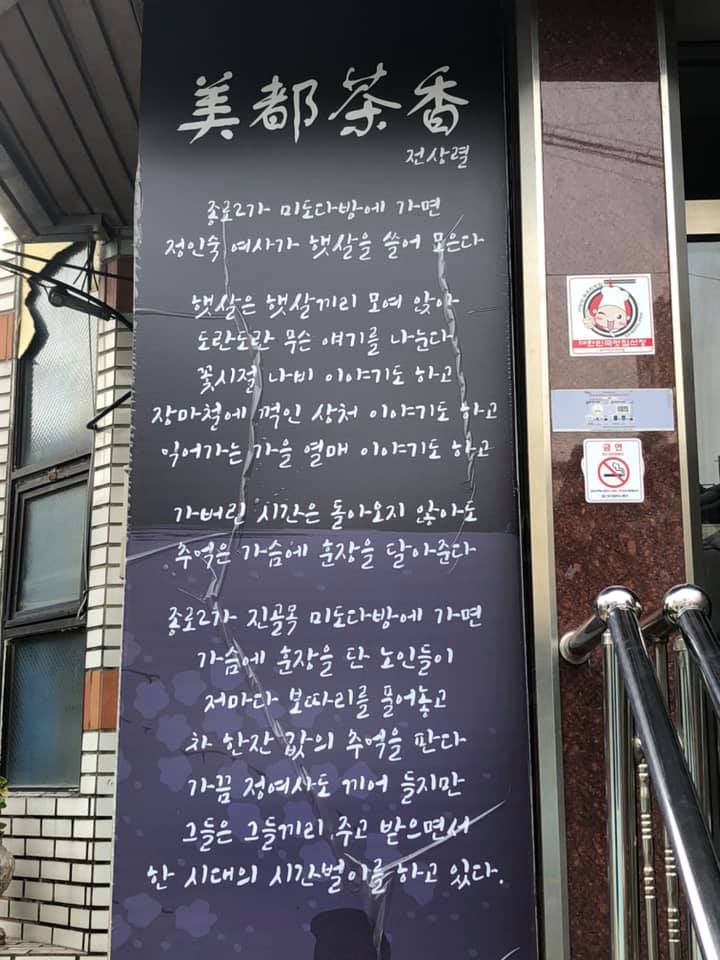 美都茶香
전상렬
종로2가 미도다방에 가면
정인숙 여사가 햇살을 쓸어 모은다
햇살은 햇살끼리 모여 앉아
도란도란 무슨 얘기를 나눈다
꽃시절 나비 이야기도 하고
장마철에 꺽인 상처 이야기도 하고
익어가는 가을 열매 이야기도 하고
가버린 시간은 돌아오지 않아도
추억은 가슴에 훈장을 달아준다
종로2가 진골목 미도다방에 가면
가슴에 훈장을 단 노인들이
저마다 보따리를 풀어놓고
차 한잔 값의 추억을 판다
가끔 정여사도 끼어 들지만
그들은 그들끼리 주고 받으면서
한 시대의 시간벌이를 하고 있다.
금연